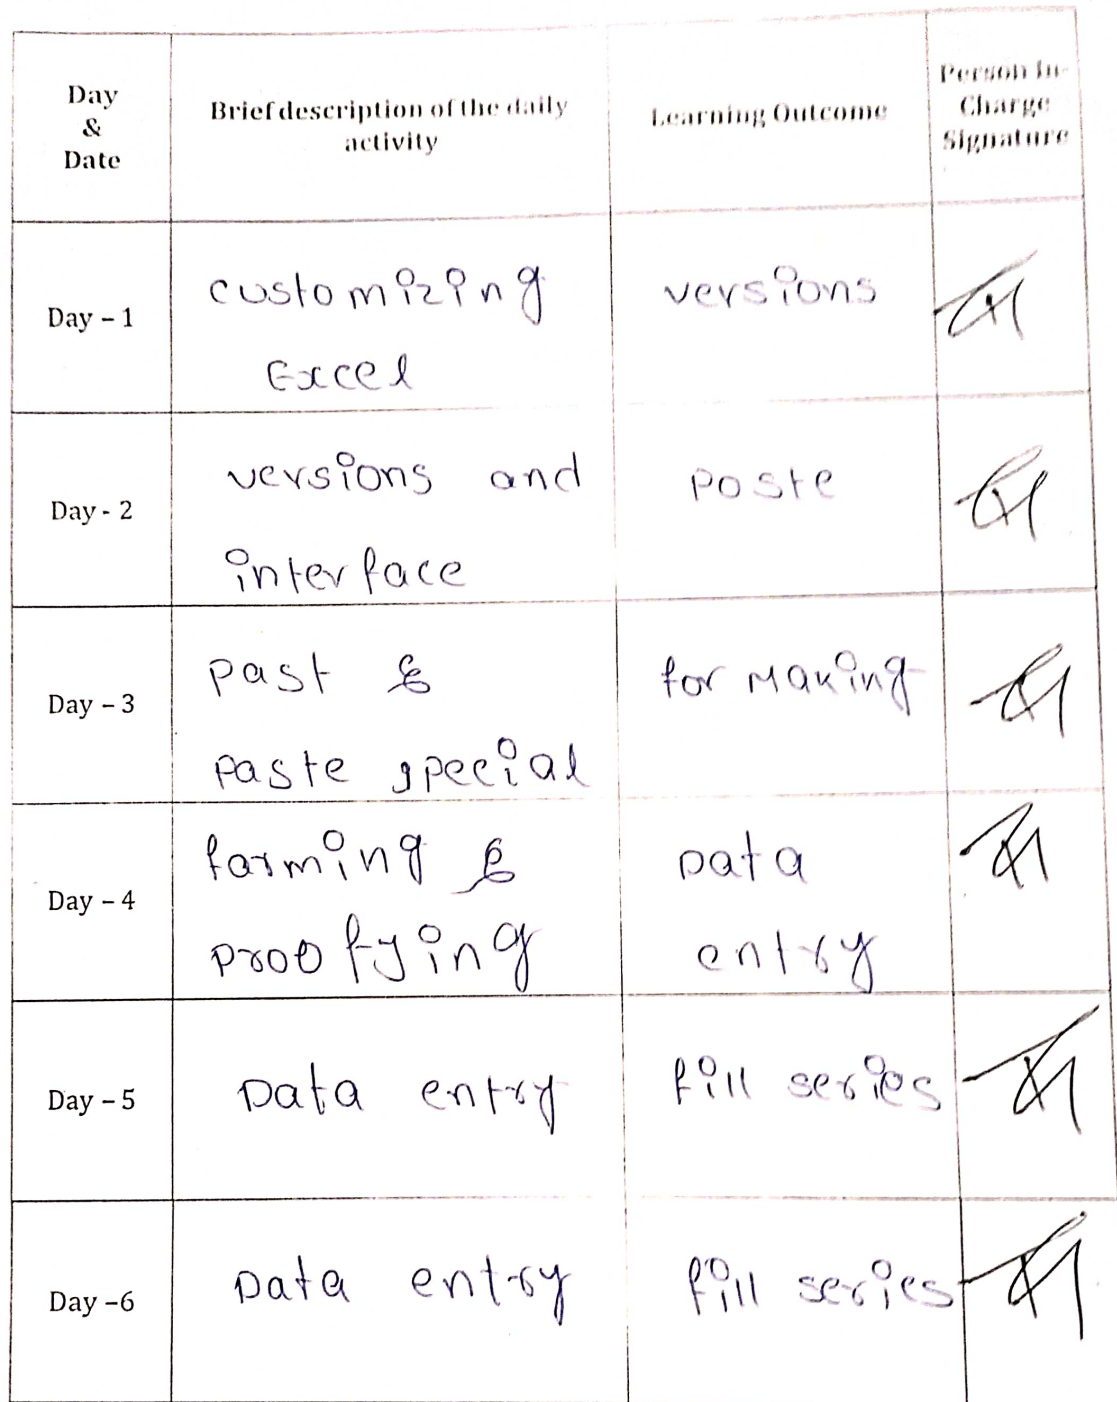 Day & Date
Brief description of the daily activity
Learning Outcome
Person In-Charge Signature
Day – 1
customizing
Excel
versions
Day - 2
versions and
interface
Poste
Day – 3
Past &
Paste special
for Making
Day – 4
farming &
proofying
Data
entry
Day – 5
Data entry
fill series
Day –6
Data entry
fill series